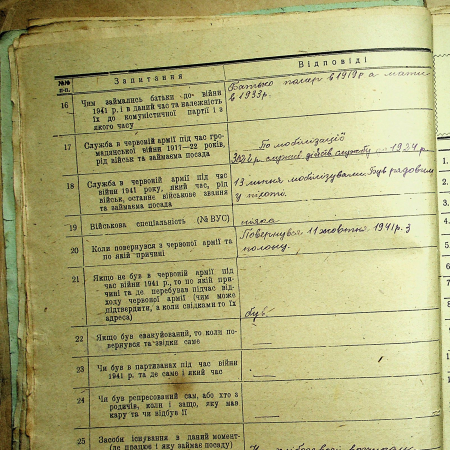 №№ п-п.
Запитання
Відповіді
16
Чим займались батьки до війни
1941 р. і в даний час та належність
їх до комуністичної партії і з
якого часу
Батько помер в 1919 р а мати
в 1933 р.
17
Служба в червоній армії під час гро-
мадянської війни 1917—22 років,
рід військ та займаєма посада
По мобілізації
по 1924 р.
18
Служба в червоній армії під час
війни 1941 року, який час, рід
військ, останнє військове звання
та займаєма посада
13 липня мобілізували. Був рядовим
у піхоті.
19
Військова спеціальність (№ ВУС)
ніяка
20
Коли повернувся з червоної армії та
по якій причині
Повернувся 11 жовтня 1941 р. з
полону.
21
Якщо не був в червоній армії під
час війни 1941 р., то по якій при-
чині та де перебував підчас від-
ходу червоної армії (чим може
підтвердити, а коли свідками то їх
адреса)
був
22
Якщо був евакуйований, то коли по-
вернувся та звідки саме
23
Чи був в партизанах під час війни
1941 р. та де саме і який час
24
Чи був репресований сам, або хто з
родичів, коли і защо, яку мав
кару та чи відбув її
25
Засоби існування в даний момент
(де працює і яку займає посаду)
1.
2.
3.
4.
5.
6.
7.
8.
9.
10.